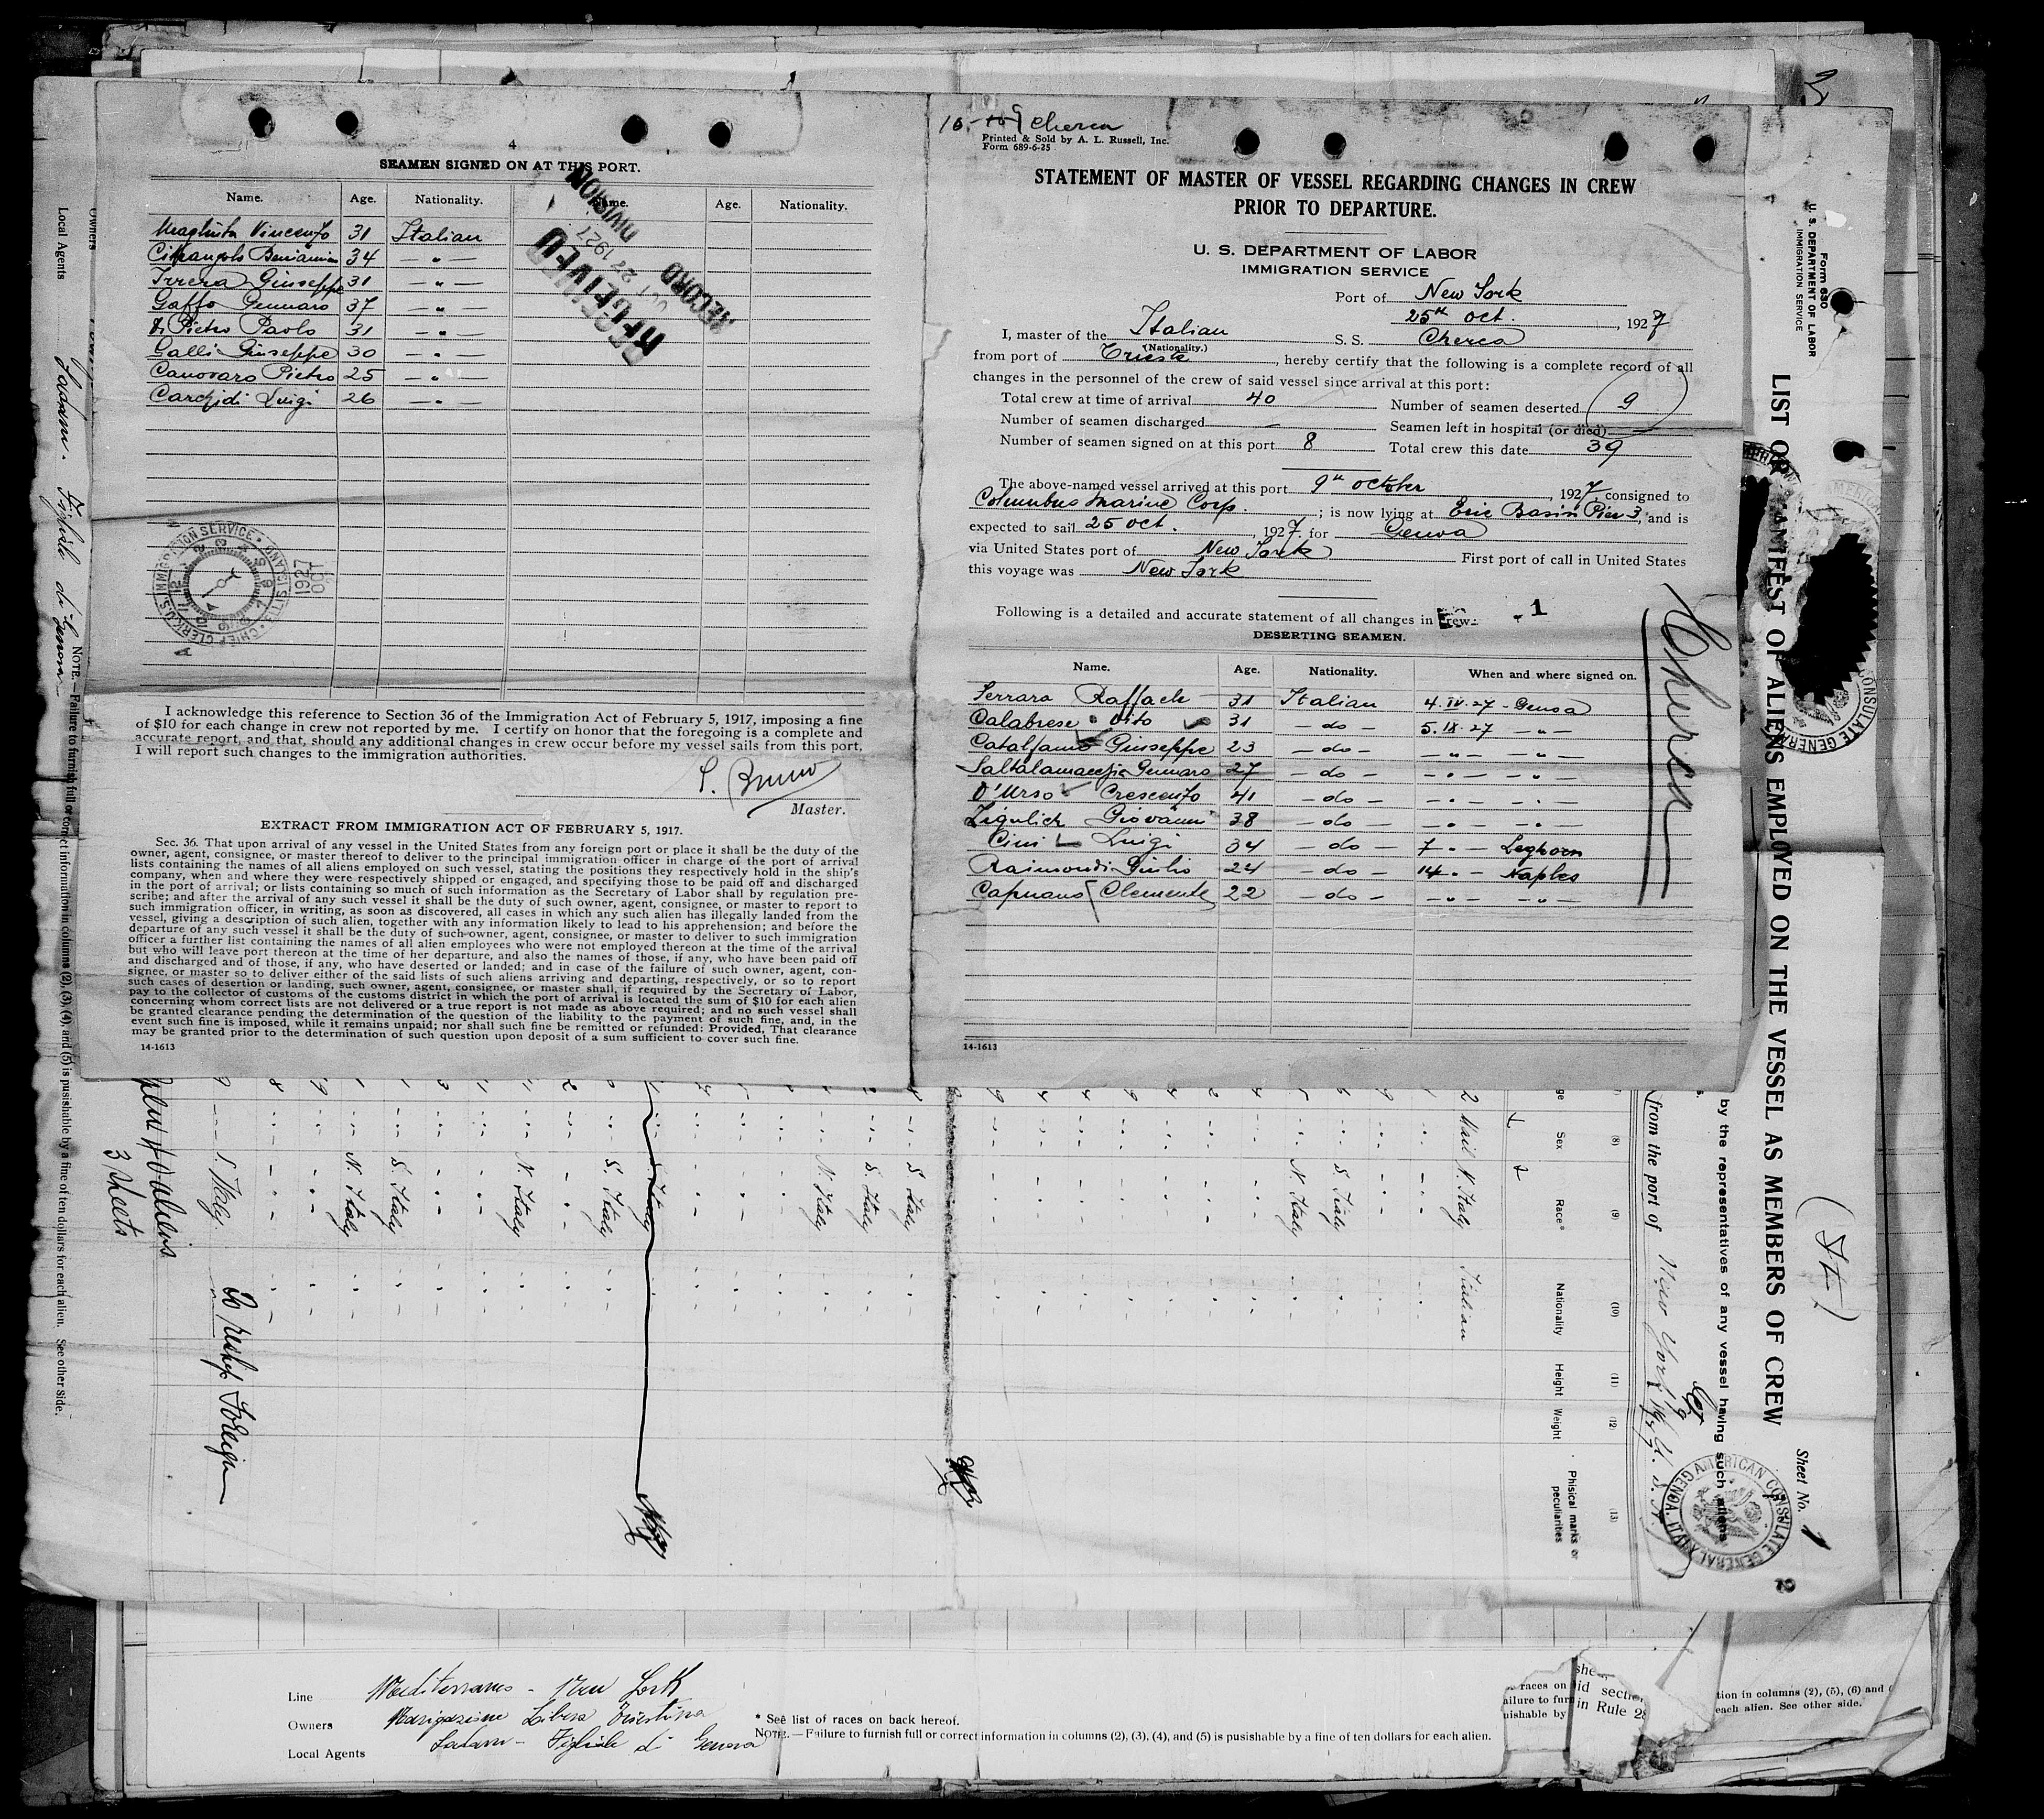 4
SEAMEN SIGNED ON AT THIS PORT.
Name. Age. Nationality. Name. Age. Nationality.
Vincenzo 31 Italian
Beniamino 34 — " —
Irrera Giuseppe 31 — " —
Gaffo Gennaro 37 — " —
Di Pietro Paolo 31 — " —
Galli Giuseppe 30 — " —
Canovaro Pietro 25 — " —
Carchidi Luigi 26 — " —
RECEIVED
OCT 27 1927
RECORD DIVISION
U.S. IMMIGRATION SERVICE • ELLIS ISLAND • CHIEF CLERK
1927 OCT
I acknowledge this reference to Section 36 of the Immigration Act of February 5, 1917, imposing a fine
of $10 for each change in crew not reported by me. I certify on honor that the foregoing is a complete and
accurate report, and that, should any additional changes in crew occur before my vessel sails from this port,
I will report such changes to the immigration authorities.
S. Bruno
Master.
EXTRACT FROM IMMIGRATION ACT OF FEBRUARY 5, 1917.
Sec. 36. That upon arrival of any vessel in the United States from any foreign port or place it shall be the duty of the
owner, agent, consignee, or master thereof to deliver to the principal immigration officer in charge of the port of arrival
lists containing the names of all aliens employed on such vessel, stating the positions they respectively hold in the ship's
company, when and where they were respectively shipped or engaged, and specifying those to be paid off and discharged
in the port of arrival; or lists containing so much of such information as the Secretary of Labor shall by regulation pre-
scribe; and after the arrival of any such vessel it shall be the duty of such owner, agent, consignee, or master to report to
such immigration officer, in writing, as soon as discovered, all cases in which any such alien has illegally landed from the
vessel, giving a description of such alien, together with any information likely to lead to his apprehension; and before the
departure of any such vessel it shall be the duty of such owner, agent, consignee, or master to deliver to such immigration
officer a further list containing the names of all alien employees who were not employed thereon at the time of the arrival
but who will leave port thereon at the time of her departure, and also the names of those, if any, who have been paid off
and discharged and of those, if any, who have deserted or landed; and in case of the failure of such owner, agent, con-
signee, or master so to deliver either of the said lists of such aliens arriving and departing, respectively, or so to report
such cases of desertion or landing, such owner, agent, consignee, or master shall, if required by the Secretary of Labor,
pay to the collector of customs of the customs district in which the port of arrival is located the sum of $10 for each alien
concerning whom correct lists are not delivered or a true report is not made as above required; and no such vessel shall
be granted clearance pending the determination of the question of the liability to the payment of such fine, and, in the
event such fine is imposed, while it remains unpaid; nor shall such fine be remitted or refunded: Provided, That clearance
may be granted prior to the determination of such question upon deposit of a sum sufficient to cover such fine.
14-1613
Cherca
Printed & Sold by A. L. Russell, Inc.
Form 689-6-25
STATEMENT OF MASTER OF VESSEL REGARDING CHANGES IN CREW
PRIOR TO DEPARTURE.
U. S. DEPARTMENT OF LABOR
IMMIGRATION SERVICE
Port of New York
25th oct. , 1927
I, master of the Italian S. S. Cherca
(Nationality.)
from port of Trieste, hereby certify that the following is a complete record of all
changes in the personnel of the crew of said vessel since arrival at this port:
Total crew at time of arrival 40 Number of seamen deserted 9
Number of seamen discharged — Seamen left in hospital (or died) —
Number of seamen signed on at this port 8 Total crew this date 39
The above-named vessel arrived at this port 9th october , 1927, consigned to
Columbus Marine Corp. ; is now lying at Eric Basin Pier 3, and is
expected to sail 25 oct. , 1927. for Genoa
via United States port of New York First port of call in United States
this voyage was New York
Following is a detailed and accurate statement of all changes in crew: 1
DESERTING SEAMEN.
Name. Age. Nationality. When and where signed on.
Ferrara Raffaele 31 Italian 4.IX.27 - Genoa
Calabrese Vito 31 — do — 5.IX.27 — " —
Catalfamo Giuseppe 23 — do — — " — — " —
Saltalamacchia Gennaro 27 — do — — " — — " —
D'Urso Crescenzo 41 — do — — " — — " —
Zigulich Giovanni 38 — do — — " — — " —
Cini Luigi 34 — do — 7 " — Leghorn
Raimondi Giulio 24 — do — 14 " — Naples
Capuano Clemente 22 — do — — " — — " —
14-1613
Cherca
Form 680
U. S. DEPARTMENT OF LABOR
IMMIGRATION SERVICE
LIST OR MANIFEST OF ALIENS EMPLOYED ON THE VESSEL AS MEMBERS OF CREW
Sheet No. 1
by the representatives of any vessel having such aliens
from the port of New York
AMERICAN CONSULATE GENERAL
GENOA, ITALY
(8) (9) (10) (11) (12) (13)
Sex Race* Nationality Height Weight Phisical marks or peculiarities
N. Italy Italian
S. Italy
N. Italy
S. Italy
S. Italy
N. Italy
S. Italy
S. Italy
N. Italy
S. Italy
N. Italy
S. Italy
3 sheets
Owners
Local Agents
Figliole di Genova
NOTE.—Failure to furnish full or correct information in columns (2), (3), (4), and (5) is pusishable by a fine of ten dollars for each alien. See other side.
Line Mediterraneo - New York
Owners Navigazione Libera Triestina
Local Agents Figliole di Genova
* See list of races on back hereof.
NOTE.—Failure to furnish full or correct information in columns (2), (3), (4), and (5) is pusishable by a fine of ten dollars for each alien.
in Rule 28
tion in columns (2), (5), (6) and
each alien. See other side.